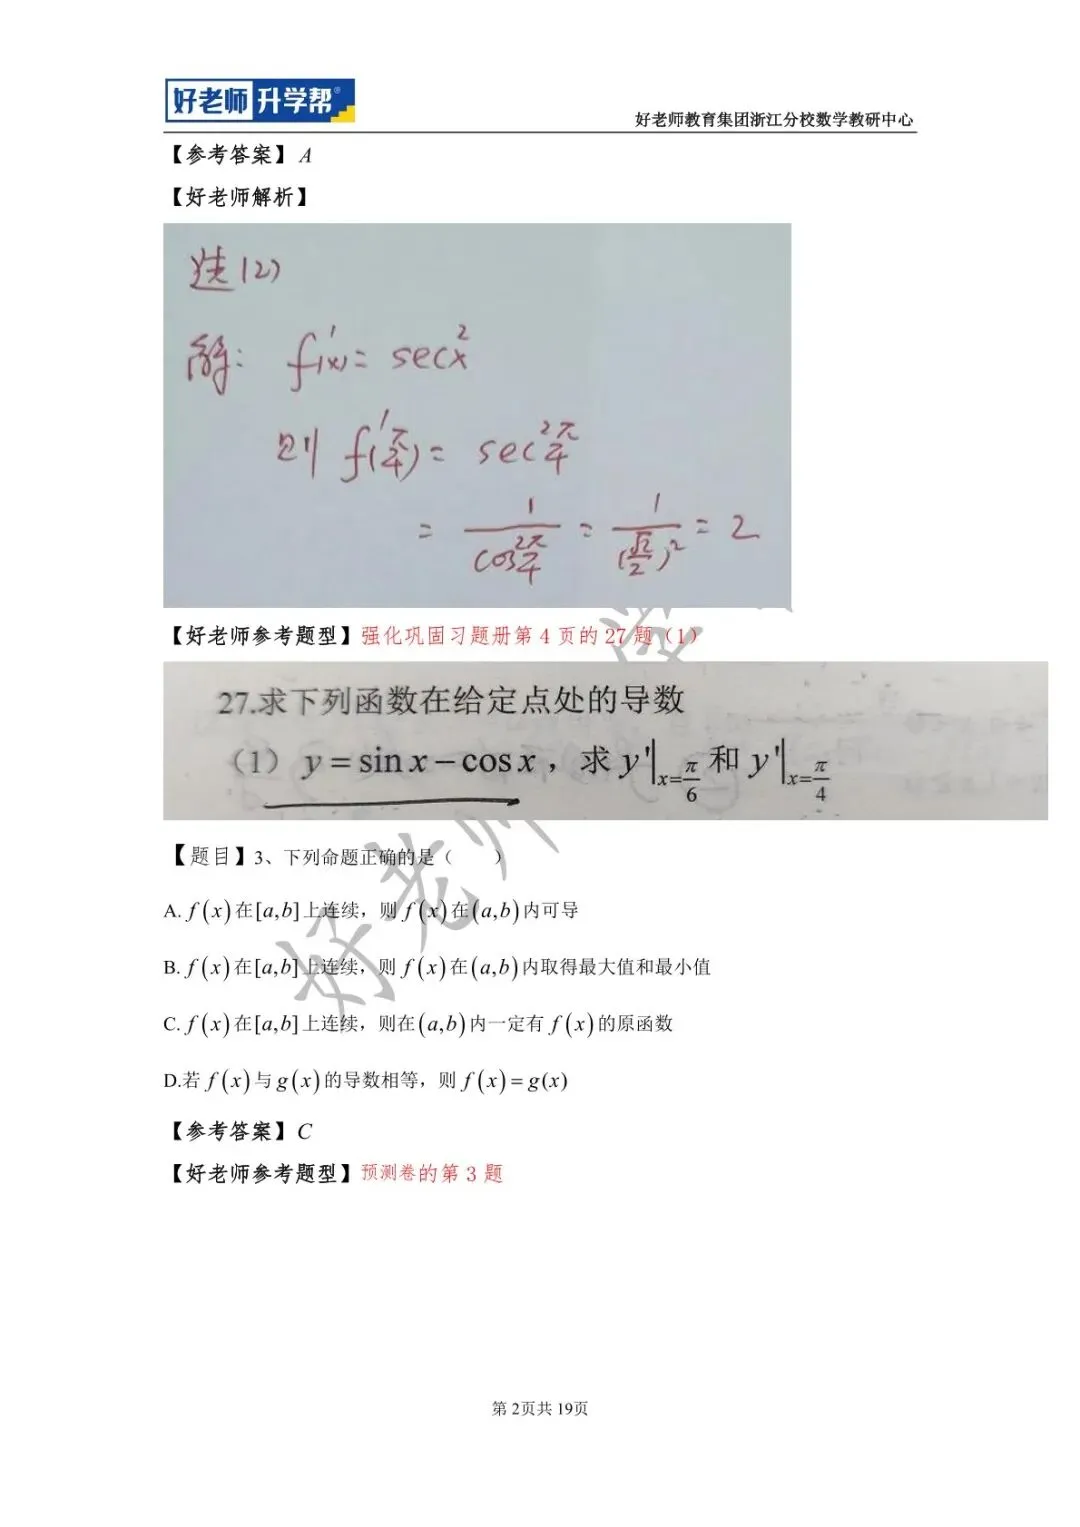 好老师 升学帮
好老师教育集团浙江分校数学教研中心
【参考答案】A
【好老师解析】
选(2)
解: f'(x)= secx²
则 f'(π/4)= sec²π/4
= 1/cos²π/4 = 1/(√2/2)² = 2
【好老师参考题型】强化巩固习题册第 4 页的 27 题（1）
27.求下列函数在给定点处的导数
（1） y = sin x − cos x ，求 y'|x=π/6 和 y'|x=π/4
【题目】3、下列命题正确的是（　　）
A. f(x)在[a,b]上连续，则 f(x)在(a,b)内可导
B. f(x)在[a,b]上连续，则 f(x)在(a,b)内取得最大值和最小值
C. f(x)在[a,b]上连续，则在(a,b)内一定有 f(x)的原函数
D.若 f(x)与g(x)的导数相等，则 f(x)=g(x)
【参考答案】C
【好老师参考题型】预测卷的第 3 题
好老师
第 2页共 19页